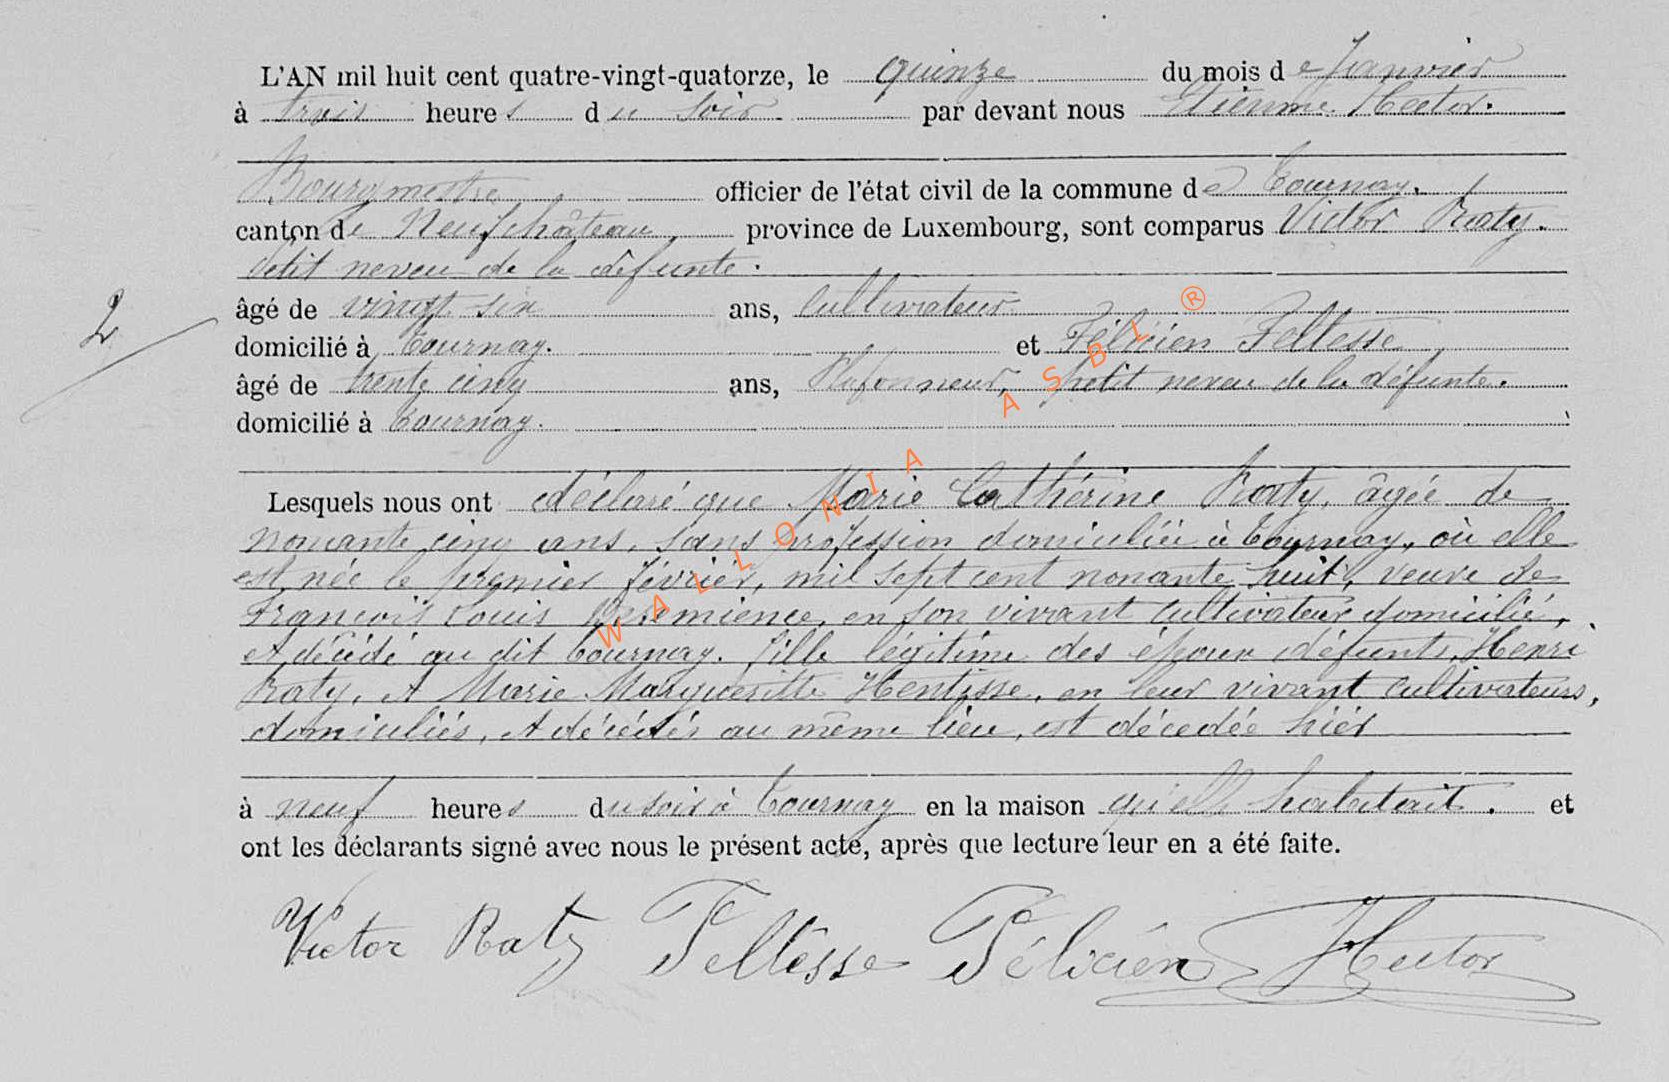 L'AN mil huit cent quatre-vingt-quatorze, le quinze du mois de Janvier
à trois heures du soir par devant nous Etienne Hector.
Bourgmestre officier de l'état civil de la commune de Tournay.
canton de Neufchâteau, province de Luxembourg, sont comparus Victor Raty.
petit neveu de la défunte.
âgé de vingt six ans, Cultivateur
domicilié à Tournay. et Félicien Feltesse
âgé de trente cinq ans, Plafonneur, petit neveu de la défunte.
domicilié à Tournay.
2
Lesquels nous ont déclaré que Marie Cathérine Raty, âgée de
nonante cinq ans, sans profession domiciliée à Tournay, où elle
est née le premier février, mil sept cent nonante huit, veuve de
François Louis en son vivant cultivateur domicilié,
et décédé au dit Tournay. fille légitime des époux défunts, Henri
Raty, et Marie Margueritte Hentisse, en leur vivant cultivateurs,
domiciliés, et décédés au même lieu, est décedée hier
à neuf heures du soir à Tournay en la maison qu'elle habitait. et
ont les déclarants signé avec nous le présent acte, après que lecture leur en a été faite.
Victor Raty Feltesse Félicien Hector
WALLONIA ASBL ®